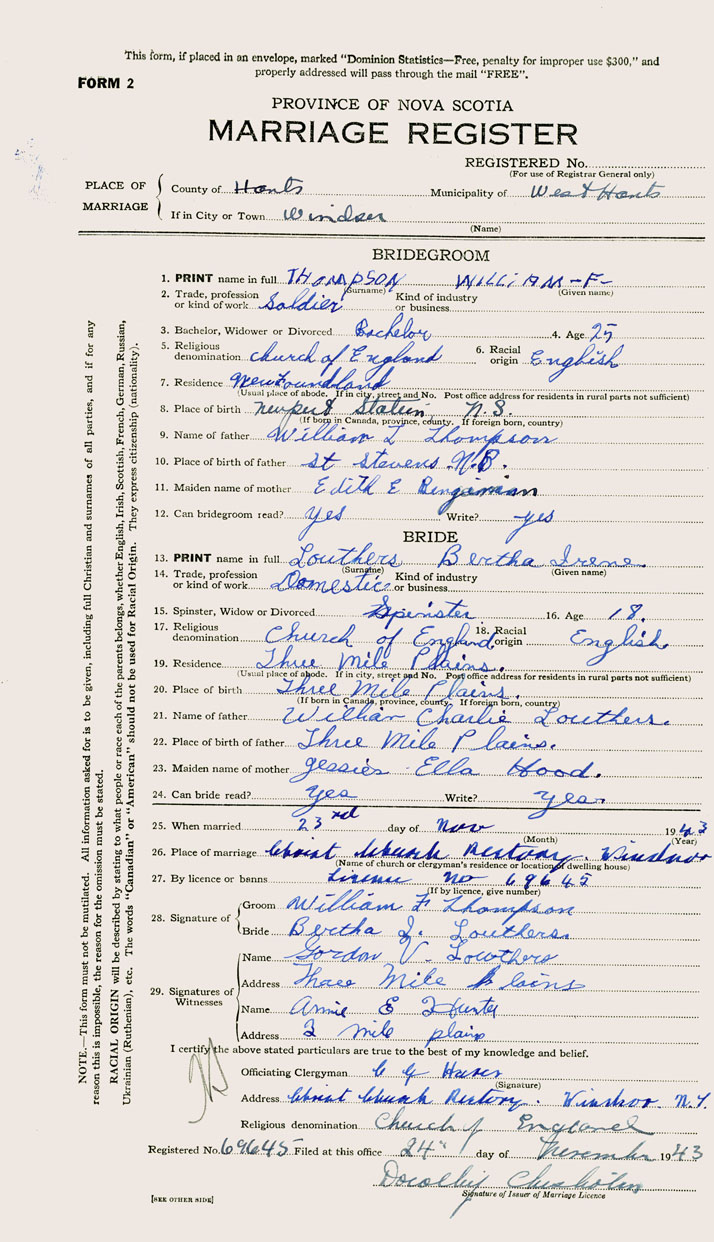 This form, if placed in an envelope, marked "Dominion Statistics—Free, penalty for improper use $300," and
properly addressed will pass through the mail "FREE".
FORM 2
PROVINCE OF NOVA SCOTIA
MARRIAGE REGISTER
REGISTERED No.
(For use of Registrar General only)
PLACE OF MARRIAGE
County of Hants Municipality of West Hants
If in City or Town Windsor
(Name)
BRIDEGROOM
1. PRINT name in full THOMPSON WILLIAM-F-
(Surname) (Given name)
2. Trade, profession or kind of work Soldier Kind of industry or business
3. Bachelor, Widower or Divorced Bachelor 4. Age 25
5. Religious denomination Church of England 6. Racial origin English
7. Residence Newfoundland
(Usual place of abode. If in city, street and No. Post office address for residents in rural parts not sufficient)
8. Place of birth Newport Station, N.S.
(If born in Canada, province, county. If foreign born, country)
9. Name of father William L Thompson
10. Place of birth of father St Stevens N.B.
11. Maiden name of mother Edith E Benjamian
12. Can bridegroom read? yes Write? yes
BRIDE
13. PRINT name in full Louthers Bertha Irene.
(Surname) (Given name)
14. Trade, profession or kind of work Domestic Kind of industry or business
15. Spinster, Widow or Divorced Spinster 16. Age 18.
17. Religious denomination Church of England. 18. Racial origin English.
19. Residence Three Mile Plains.
(Usual place of abode. If in city, street and No. Post office address for residents in rural parts not sufficient)
20. Place of birth Three Mile Plains.
(If born in Canada, province, county. If foreign born, country)
21. Name of father William Charlie Louthers.
22. Place of birth of father Three Mile Plains.
23. Maiden name of mother Jessies Ella Hood.
24. Can bride read? yes Write? yes.
25. When married 23rd day of Nov 1943
(Month) (Year)
26. Place of marriage Christ Church Rectory. Windsor
(Name of church or clergyman's residence or location of dwelling house)
27. By licence or banns License No 69645
(If by licence, give number)
28. Signature of
Groom William F Thompson
Bride Bertha I. Louthers.
29. Signatures of Witnesses
Name Gordon V. Lowthers
Address Three Mile Plains
Name Annie E Hunter
Address 3 mile plain
I certify the above stated particulars are true to the best of my knowledge and belief.
Officiating Clergyman
(Signature)
Address Christ Church Rectory. Windsor. N.S.
Religious denomination Church of England
Registered No. 69645 Filed at this office 24" day of November 1943
Dorothy Chisholm
Signature of Issuer of Marriage Licence
[SEE OTHER SIDE]
NOTE.—This form must not be mutilated. All information asked for is to be given, including full Christian and surnames of all parties, and if for any
reason this is impossible, the reason for the omission must be stated.
RACIAL ORIGIN will be described by stating to what people or race each of the parents belongs, whether English, Irish, Scottish, French, German, Russian,
Ukrainian (Ruthenian), etc. The words "Canadian" or "American" should not be used for Racial Origin. They express citizenship (nationality).